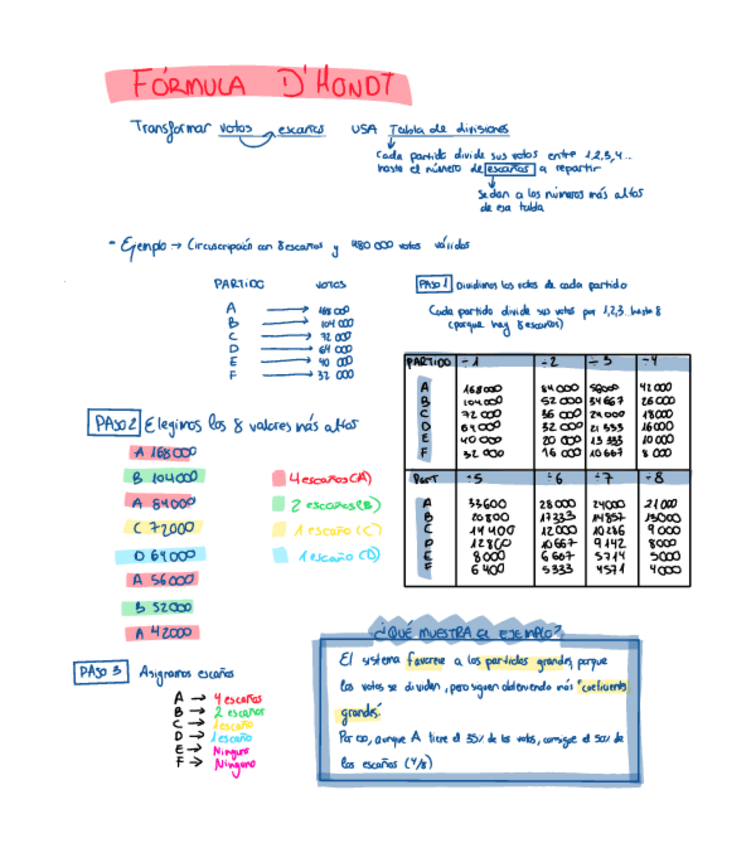 FÓRMULA D'HONDT
Transformar votos escaños USA Tabla de divisiones
Cada partido divide sus votos entre 1,2,3,4..
hasta el número de escaños a repartir
Se dan a los números más altos
de esa tabla
- Ejemplo → Circunscripción con 8 escaños y 480 000 votos válidos
PARTIDO VOTOS
A → 168 000
B → 104 000
C → 72 000
D → 64 000
E → 40 000
F → 32 000
PASO 1 Dividimos los votos de cada partido
Cada partido divide sus votos por 1,2,3.. hasta 8
(porque hay 8 escaños)
PARTIDO ÷1 ÷2 ÷3 ÷4
A 168000 84 000 56000 42 000
B 104000 52 000 34 667 26 000
C 72 000 36 000 24 000 18000
D 64 000 32 000 21 333 16 000
E 40 000 20 000 13 333 10 000
F 32 000 16 000 10 667 8 000
PART ÷5 ÷6 ÷7 ÷8
A 33600 28 000 24000 21 000
B 20 800 17333 14857 13000
C 14 400 12 000 10 286 9 000
D 12 800 10 667 9 142 8000
E 8000 6 667 5714 5000
F 6 400 5 333 4571 4 000
PASO 2 Elegimos los 8 valores más altos
A 168 000
B 104000
A 84000
C 72000
D 64000
A 56 000
B 52000
A 42000
4 escaños (A)
2 escaños (B)
1 escaño (C)
1 escaño (D)
PASO 3 Asignamos escaños
A → 4 escaños
B → 2 escaños
C → 1 escaño
D → 1 escaño
E → Ninguno
F → Ninguno
¿QUÉ MUESTRA EL EJEMPLO?
El sistema favorece a los partidos grandes, porque
los votos se dividen, pero siguen obteniendo más "coeficientes
grandes".
Por eso, aunque A tiene el 35% de los votos, consigue el 50% de
los escaños (4/8)